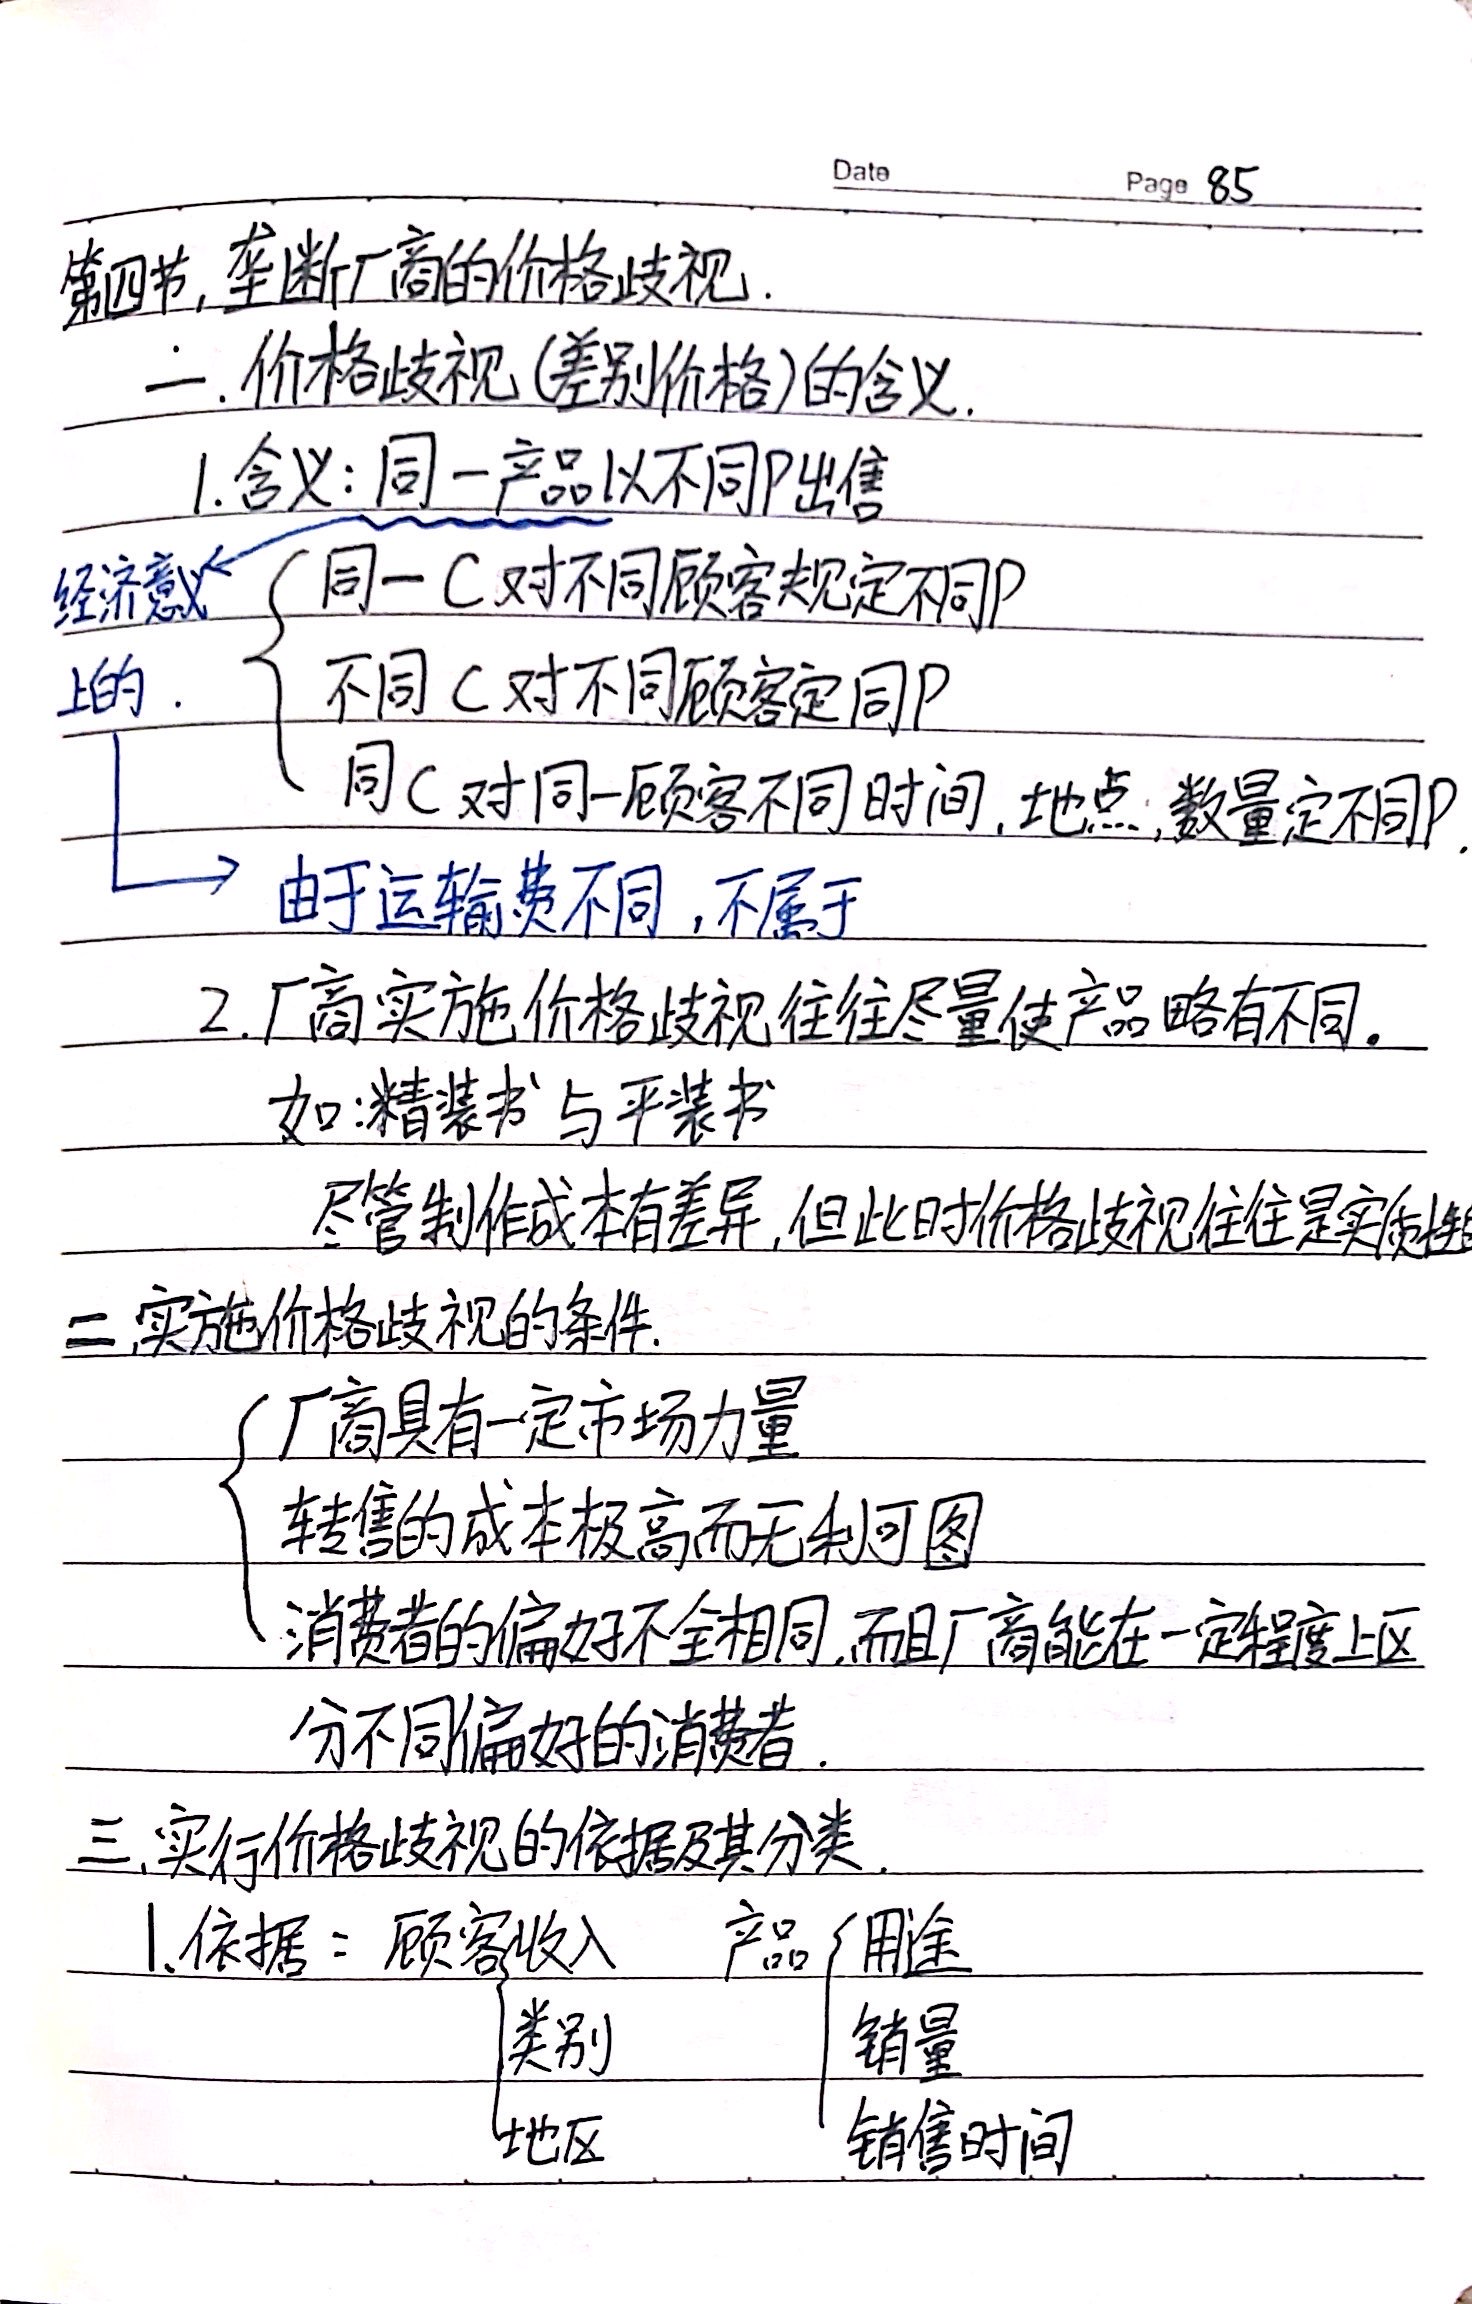 Date Page 85
第四节,垄断厂商的价格歧视.
一.价格歧视(差别价格)的含义.
1.含义:同一产品以不同P出售
经济意义 同一C对不同顾客规定不同P
上的. 不同C对不同顾客定同P
同C对同一顾客不同时间,地点,数量定不同P.
由于运输费不同,不属于
2.厂商实施价格歧视往往尽量使产品略有不同。
如:精装书与平装书
尽管制作成本有差异,但此时价格歧视往往是实质性的
二.实施价格歧视的条件.
厂商具有一定市场力量
转售的成本极高而无利可图
消费者的偏好不全相同,而且厂商能在一定程度上区
分不同偏好的消费者.
三.实行价格歧视的依据及其分类.
1.依据: 顾客收入 产品 用途
类别 销量
地区 销售时间